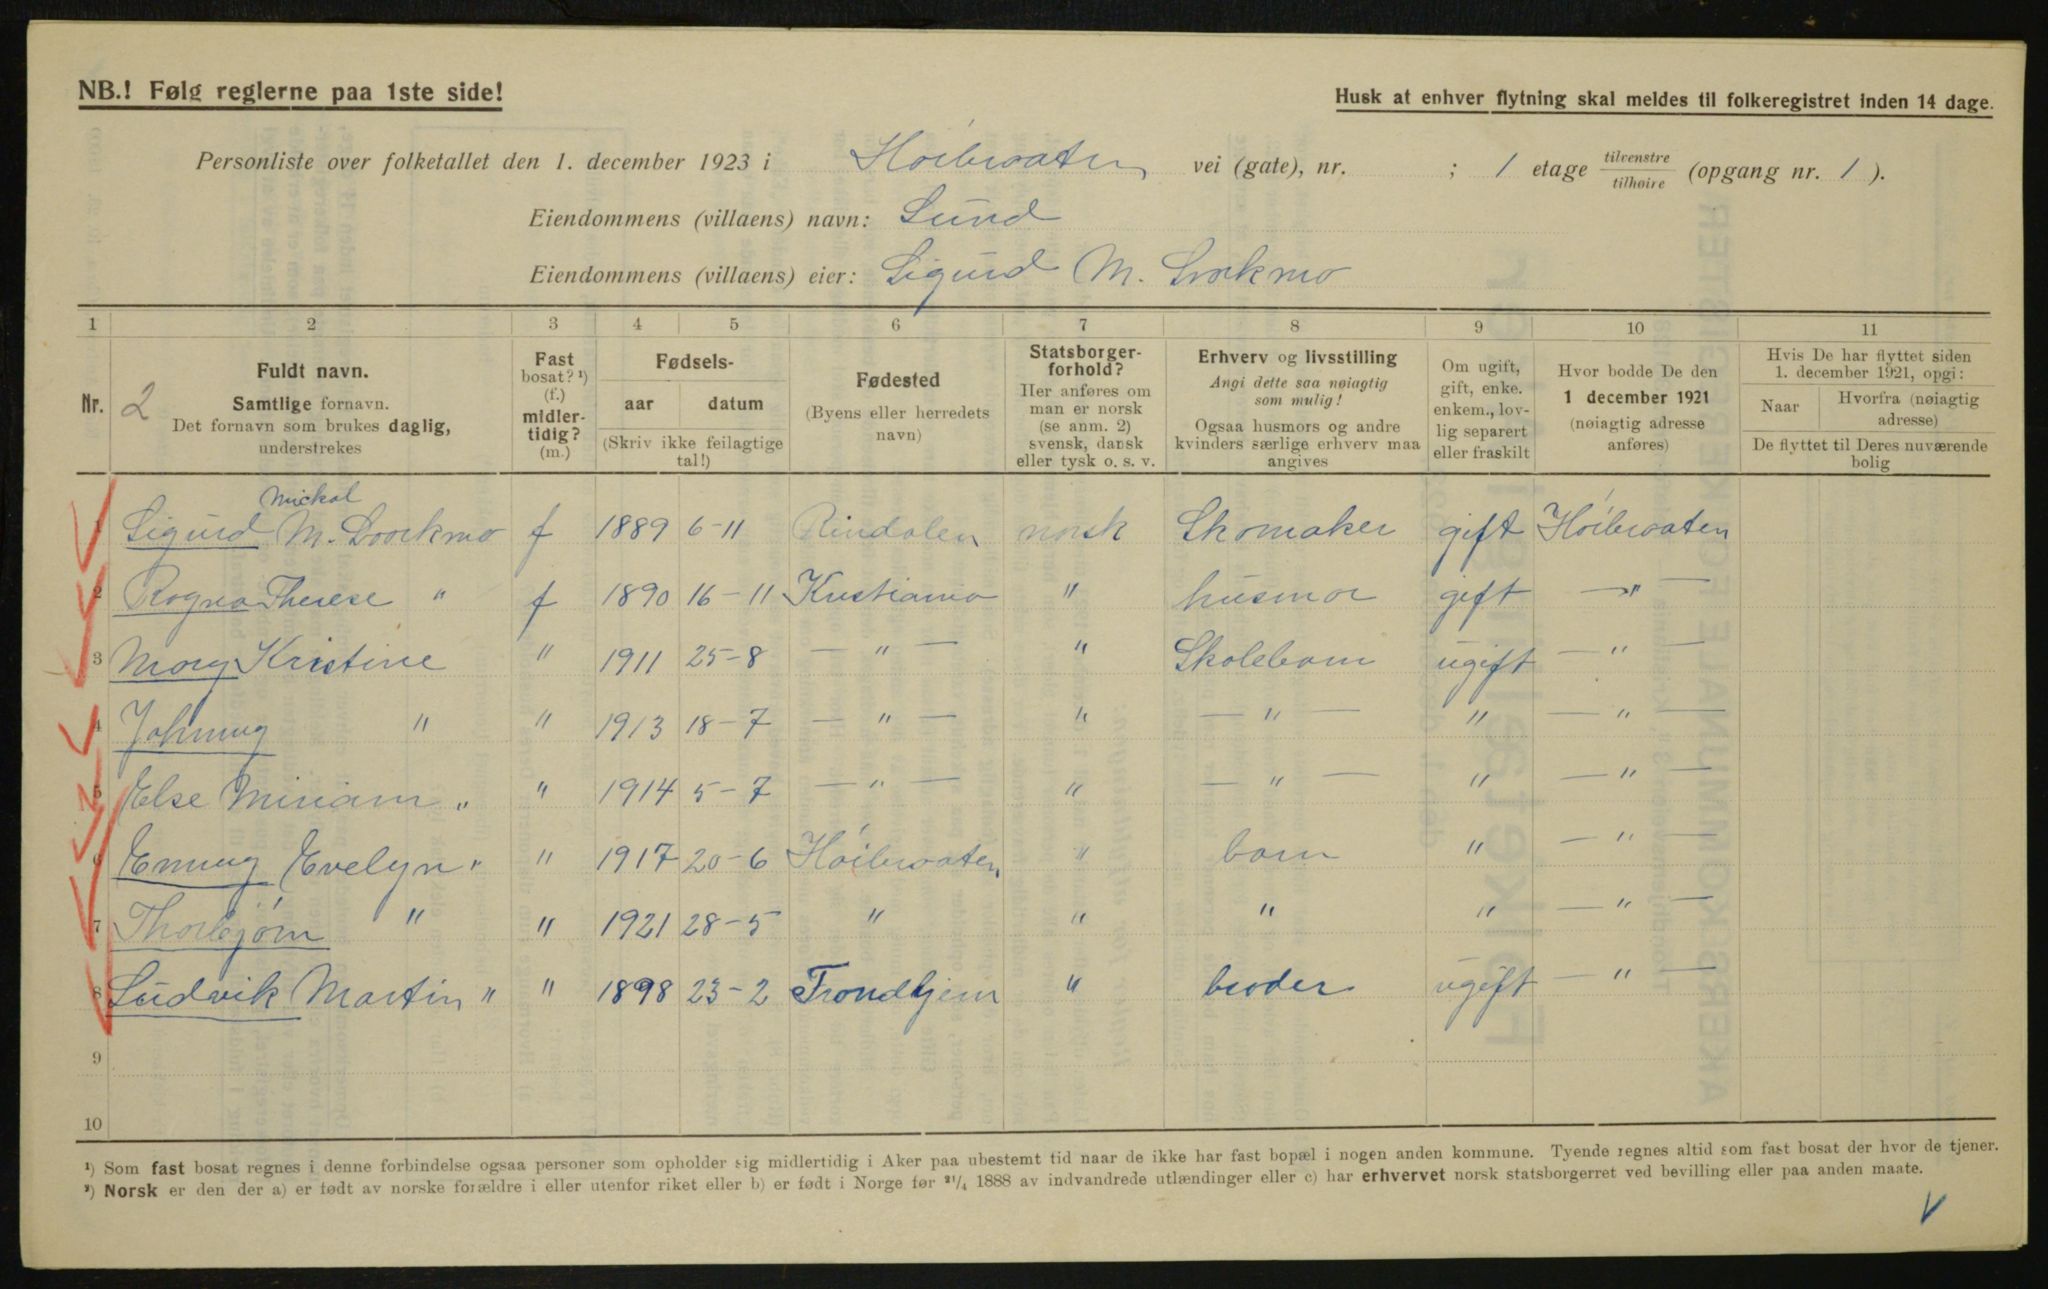 NB.! Følg reglerne paa 1ste side!
Husk at enhver flytning skal meldes til folkeregistret inden 14 dage.
Personliste over folketallet den 1. december 1923 i Høibraaten vei (gate), nr. ; 1 etage tilvenstre / tilhøire (opgang nr. 1).
Eiendommens (villaens) navn: Lund
Eiendommens (villaens) eier: Sigurd M.
1 2 3 4 5 6 7 8 9 10 11
Nr. 2 Fuldt navn. Samtlige fornavn. Det fornavn som brukes daglig, understrekes
Fast bosat? ¹) (f.) midlertidig? (m.)
Fødsels- aar datum (Skriv ikke feilagtige tal!)
Fødested (Byens eller herredets navn)
Statsborgerforhold? Her anføres om man er norsk (se anm. 2) svensk, dansk eller tysk o. s. v.
Erhverv og livsstilling Angi dette saa nøiagtig som mulig! Ogsaa husmors og andre kvinders særlige erhverv maa angives
Om ugift, gift, enke. enkem., lovlig separert eller fraskilt
Hvor bodde De den 1 december 1921 (nøiagtig adresse anføres)
Hvis De har flyttet siden 1. december 1921, opgi: Naar Hvorfra (nøiagtig adresse) De flyttet til Deres nuværende bolig
Mickal
1 Sigurd M. f 1889 6-11 Rindalen norsk Skomaker gift Høibraaten
2 Ragna Therese " f 1890 16-11 Kristiania " husmor gift —"—
3 Mary Kristine " 1911 25-8 —"— " Skolebarn ugift —"—
4 Johnny " " 1913 18-7 —"— " —"— " —"—
5 Else Miriam " " 1914 5-7 —"— " —"— " —"—
6 Enny Evelyn " " 1917 20-6 Høibraaten " barn " —"—
7 Thorbjørn " " 1921 28-5 " " " " —"—
8 Ludvik Martin " " 1898 23-2 Trondhjem " broder ugift —"—
9
10
¹) Som fast bosat regnes i denne forbindelse ogsaa personer som opholder sig midlertidig i Aker paa ubestemt tid naar de ikke har fast bopæl i nogen anden kommune. Tyende regnes altid som fast bosat der hvor de tjener.
²) Norsk er den der a) er født av norske forældre i eller utenfor riket eller b) er født i Norge før ²¹/₄ 1888 av indvandrede utlændinger eller c) har erhvervet norsk statsborgerret ved bevilling eller paa anden maate.